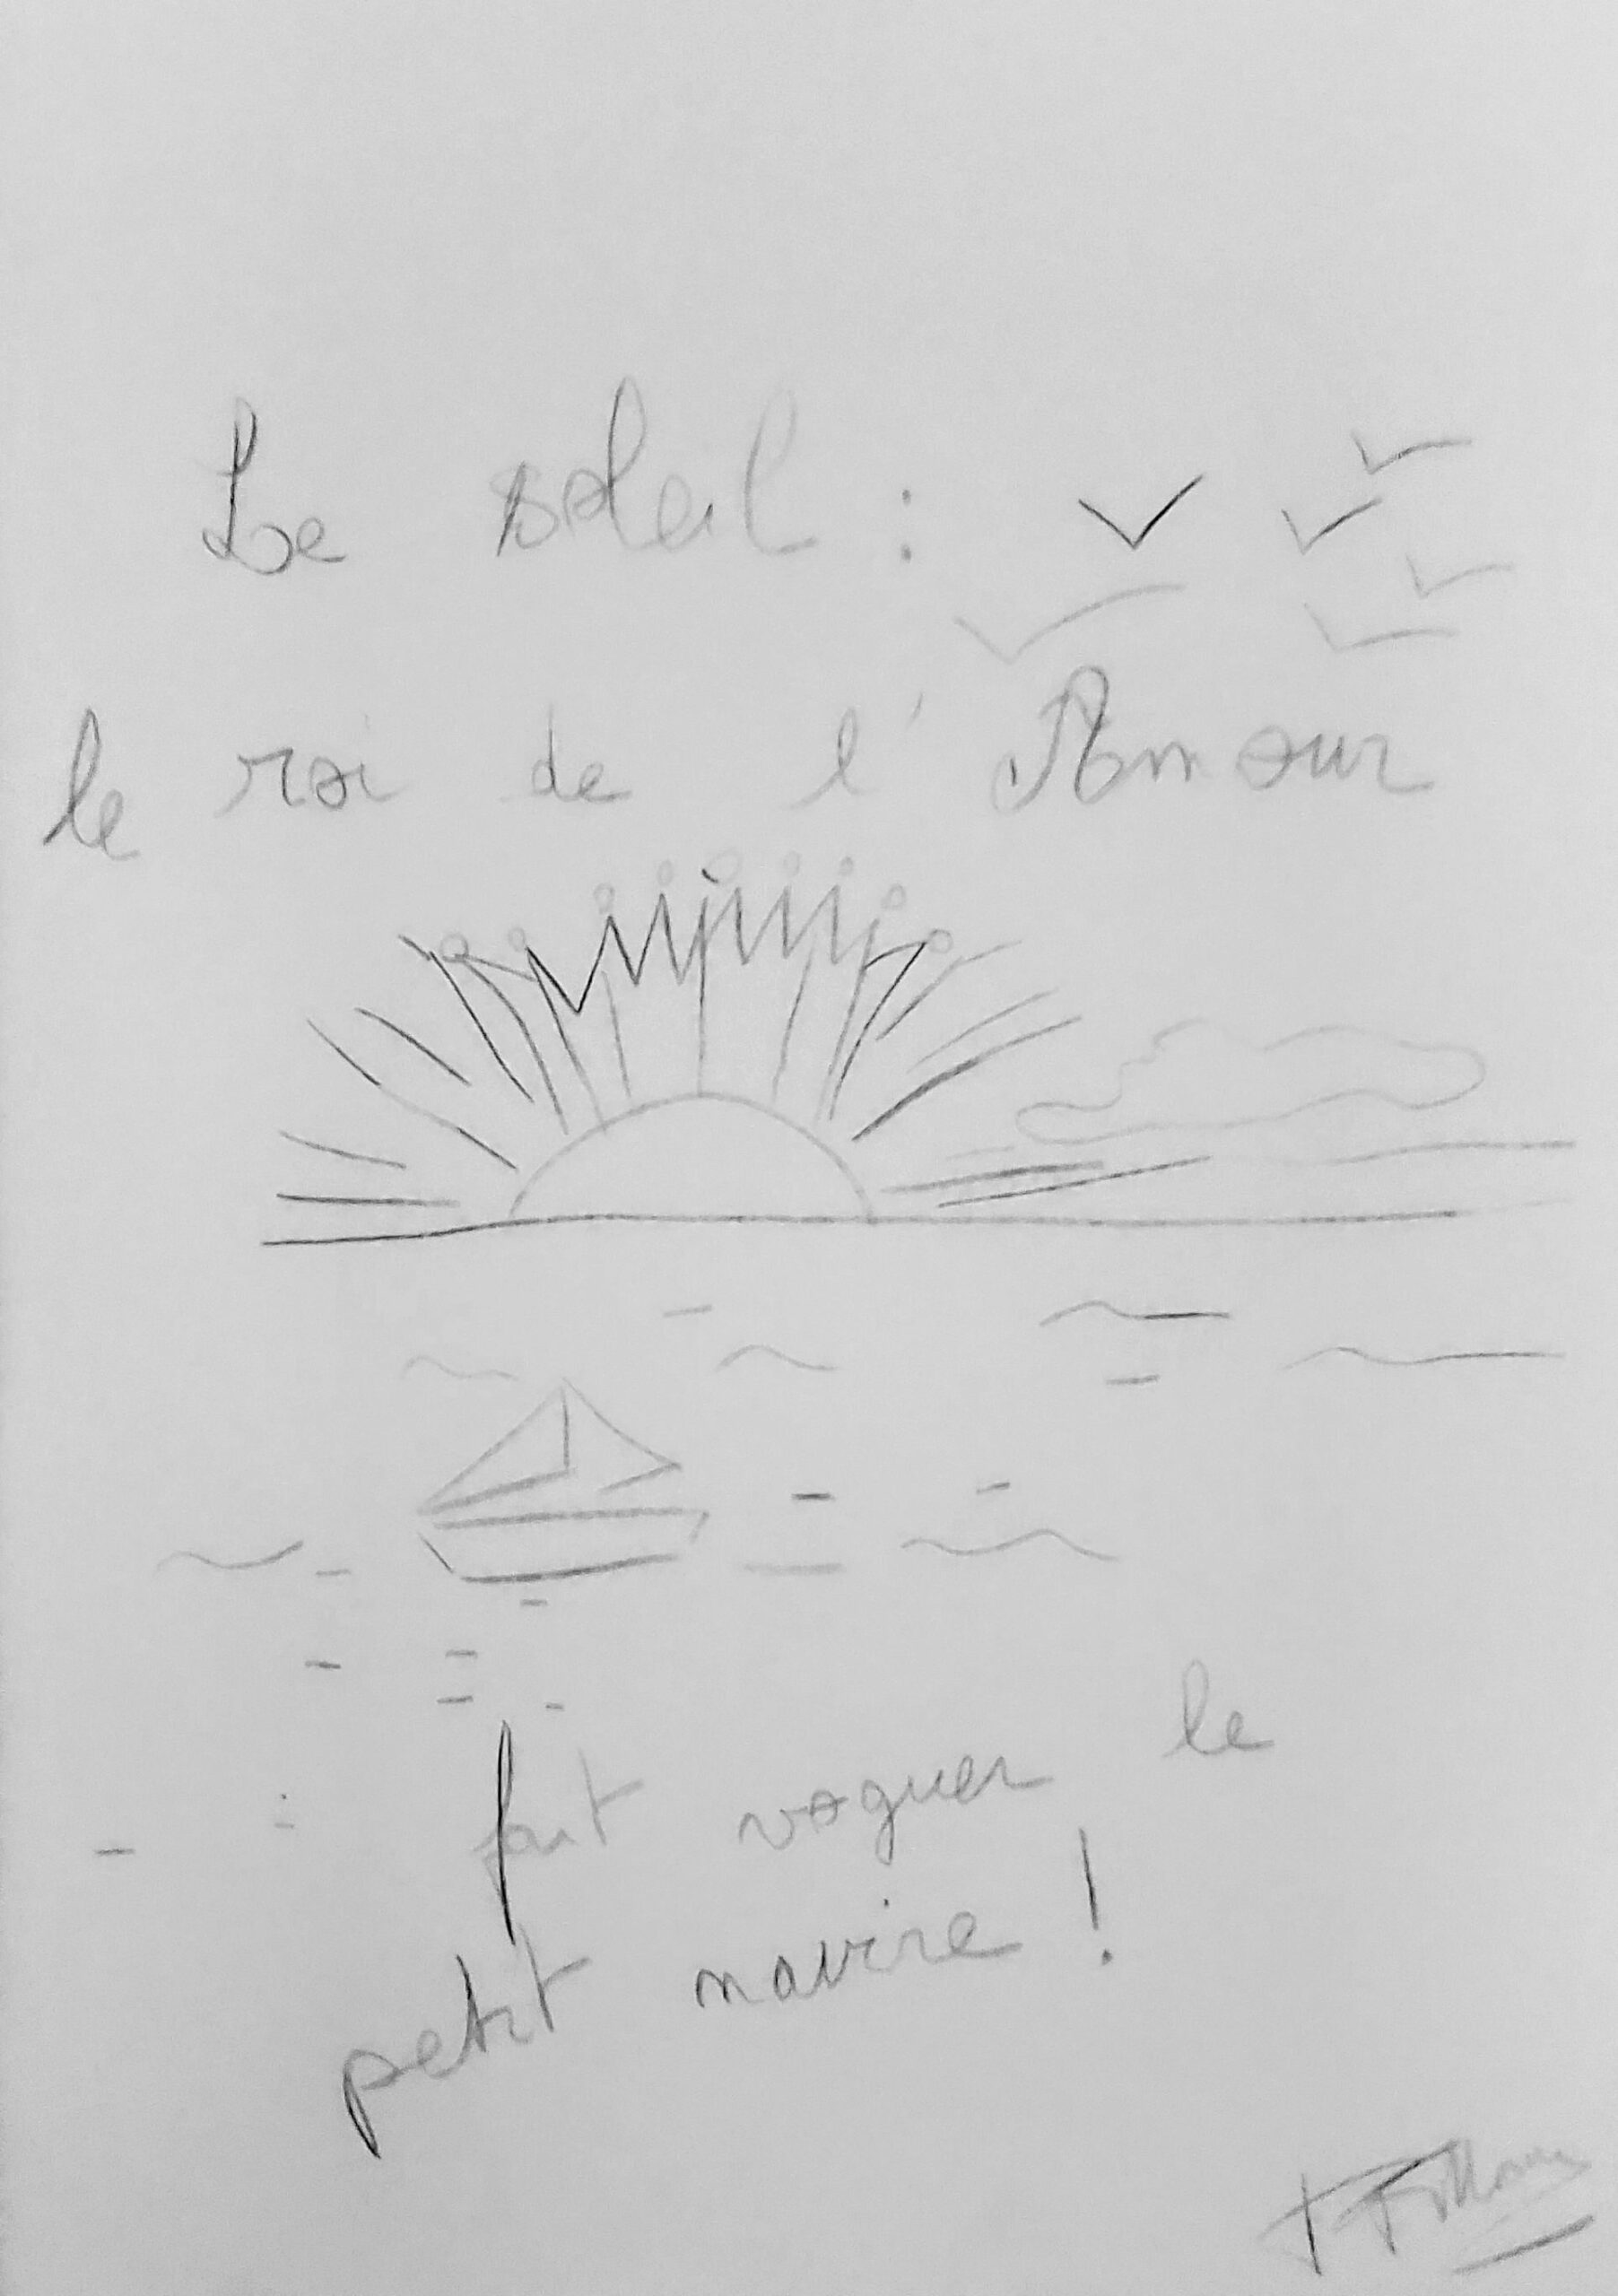 Le soleil :
le roi de l'Amour
fait voguer le
petit navire !